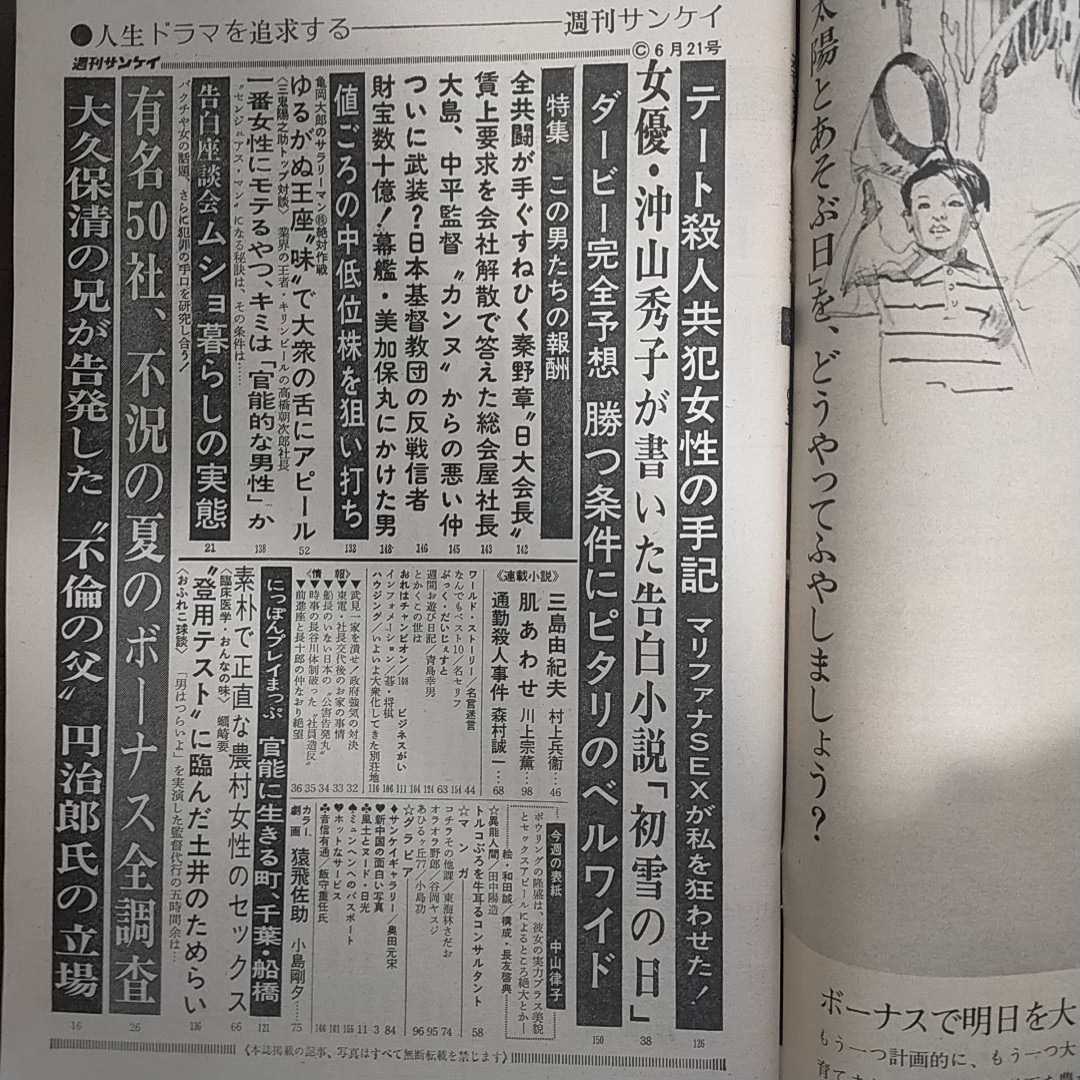 ●人生ドラマを追求する―――週刊サンケイ
週刊サンケイ
©6月21号
テート殺人共犯女性の手記 マリファナSEXが私を狂わせた! 126
女優・沖山秀子が書いた告白小説「初雪の日」 38
ダービー完全予想 勝つ条件にピタリのベルワイド 150
特集 この男たちの報酬
全共闘が手ぐすねひく秦野章〝日大会長〟 142
賃上要求を会社解散で答えた総会屋社長 143
大島、中平監督〝カンヌ〟からの悪い仲 145
ついに武装?日本基督教団の反戦信者 146
財宝数十億!幕艦・美加保丸にかけた男 148
亀岡太郎のサラリーマン㊑絶対作戦
値ごろの中低位株を狙い打ち 132
ゆるがぬ王座〝味〟で大衆の舌にアピール 52
〈三鬼陽之助トップ対談〉 業界の王者・キリンビールの高橋朝次郎社長
一番女性にモテるやつ、キミは「官能的な男性」か 138
〝センジュアス・マン〟になる秘訣は、その条件は……
告白座談会ムショ暮らしの実態 21
バクチや女の話題、さらに犯罪の手口を研究し合う!
有名50社、不況の夏のボーナス全調査 26
大久保清の兄が告発した〝不倫の父〟円治郎氏の立場 16
《連載小説》
三島由紀夫 村上兵衛…46
肌あわせ 川上宗薫…98
通勤殺人事件 森村誠一…68
ワールド・ストーリー/名官迷言 44
なんでもベスト10/名セリフ 154
ぶっく・だいじぇすと 63
週間お遊び日記/青島幸男 124
とかくこの世は 104
おれはチャンピオン/108 ビジネスがい 111
インフォメーション/碁・将棋 106
ハウジング/いよいよ大衆化してきた別荘地 116
《情報》
▼武見一家を潰せ/政府強気の対決 32
▼東電・社長交代後のお家の事情 33
▼船長のいない日本の〝公害告発丸〟 34
▼時事の長谷川体制破った〝社員造反〟 35
▼前進座と長十郎の仲なおり絶望 36
にっぽんプレイまっぷ 官能に生きる町、千葉・船橋 121
素朴で正直な農村女性のセックス 66
〈臨床医学・おんなの味〉 蠣崎要
〝登用テスト〟に臨んだ土井のためらい 136
〈おふれこ球談〉 「男はつらいよ」を実演した監督代行の五時間余は…
今週の表紙 中山律子
ボウリングの隆盛は、彼女の実力プラス美貌
とセックスアピールによるところ絶大とか―
絵・和田誠/構成・長友啓典
☆異能人間/田中陽造
トルコぶろを牛耳るコンサルタント 58
☆マンガ
コチラその他課/東海林さだお 74
オラオラ野郎/谷岡ヤスジ 95
あひるヶ丘77/小島功 96
☆グラビア
♦サンケイギャラリー/奥田元宋 84
♥新中国の面白い写真 3
♣風土とヌード・日光 11
♠ミュンヘンへのパスポート 155
♥ホットなサービス 161
♣音信有通/飯守重任氏 166
カラー劇画 猿飛佐助 小島剛夕……75
《本誌掲載の記事、写真はすべて無断転載を禁じます》
太陽とあそぶ日」を、どうやってふやしましょう?
ボーナスで明日を大
もう一つ計画的に、もう一つ大